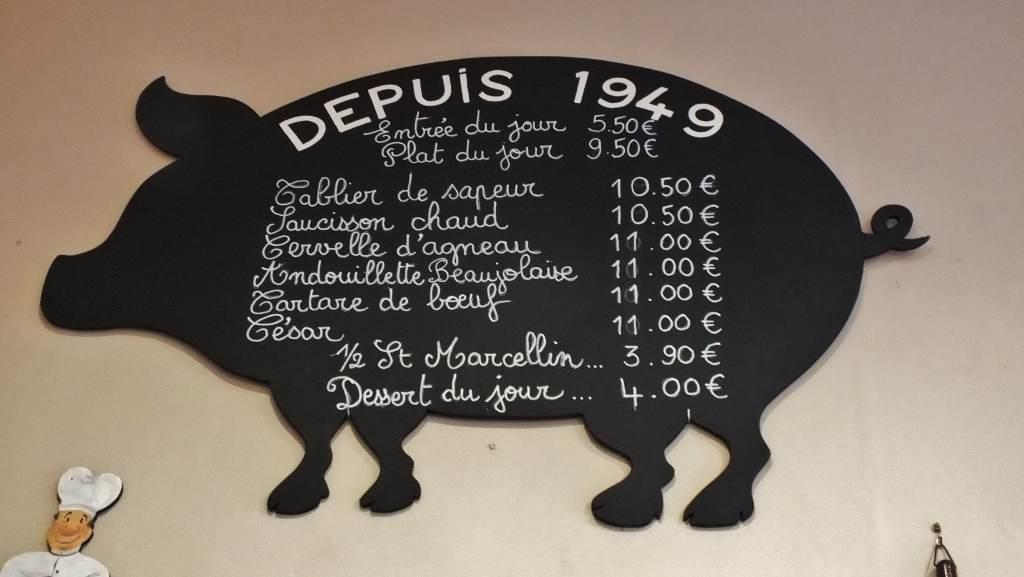 DEPUiS 1949
Entrée du jour 5.50€
Plat du jour 9.50€
Tablier de sapeur 10.50€
Saucisson chaud 10.50€
Cervelle d'agneau 11.00€
Andouillette Beaujolaise 11.00€
Tartare de bœuf 11.00€
César 11.00€
1/2 St Marcellin... 3.90€
Dessert du jour... 4.00€